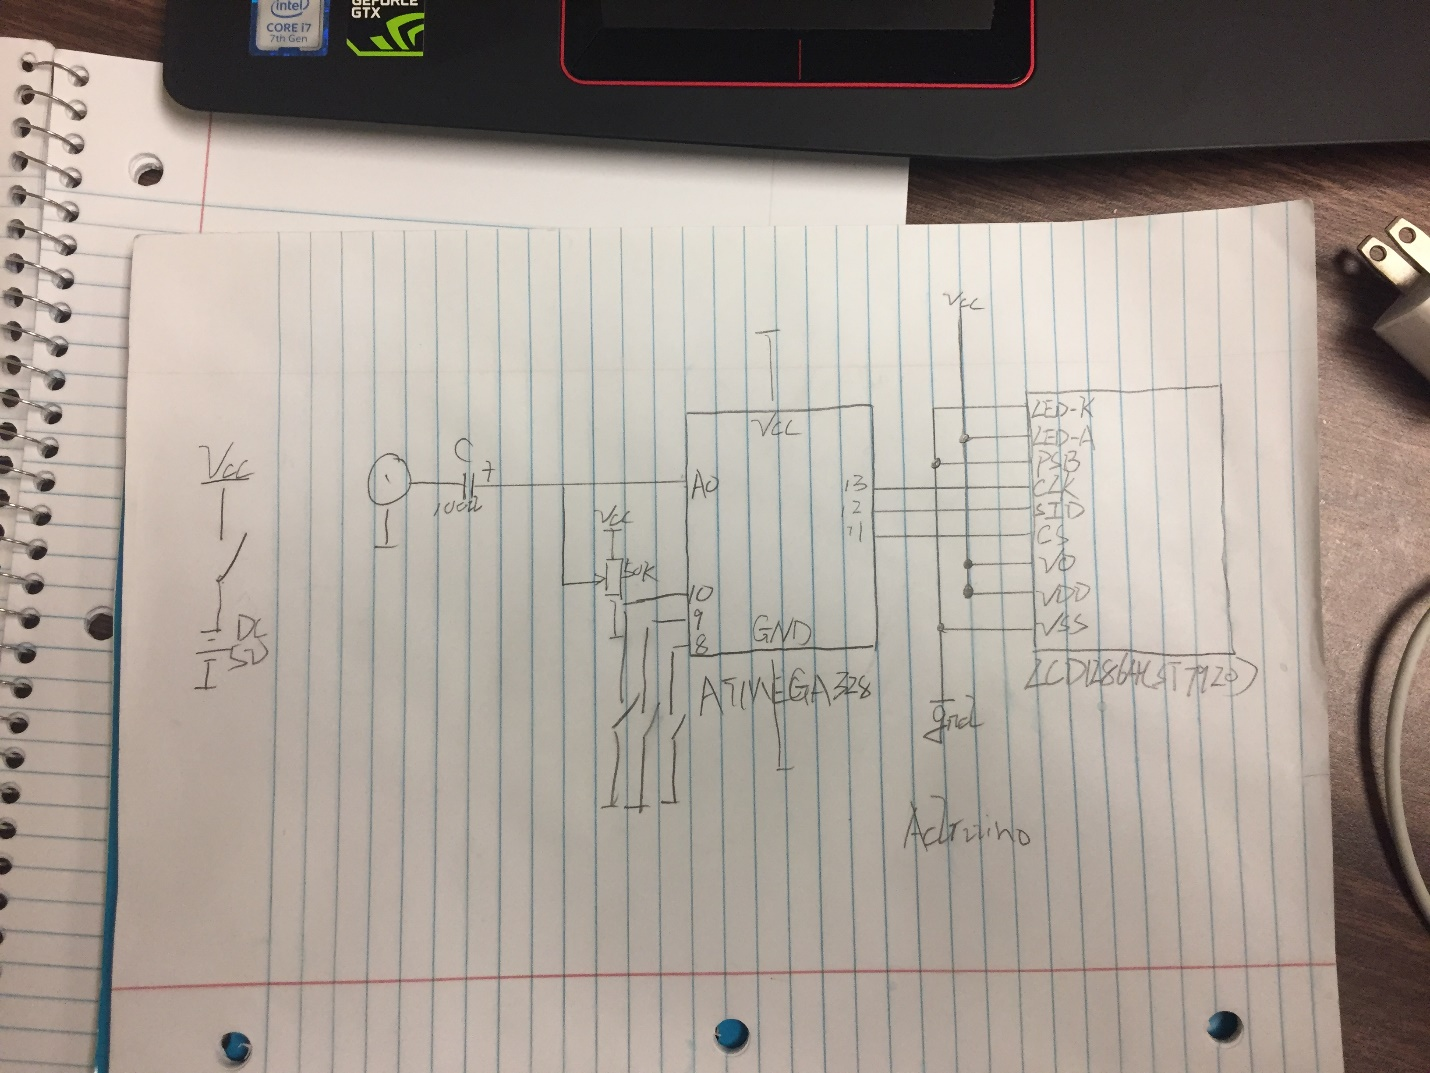 intel
CORE i7
7th Gen
GEFORCE
GTX
Vcc
DC
5V
C
+
Vcc
50K
Vcc
A0
13
12
11
10
9
8
GND
ATMEGA328
Vcc
LED-K
LED-A
PSB
CLK
SID
CS
VO
VDD
VSS
LCD12864(ST7920)
gnd
Adruino